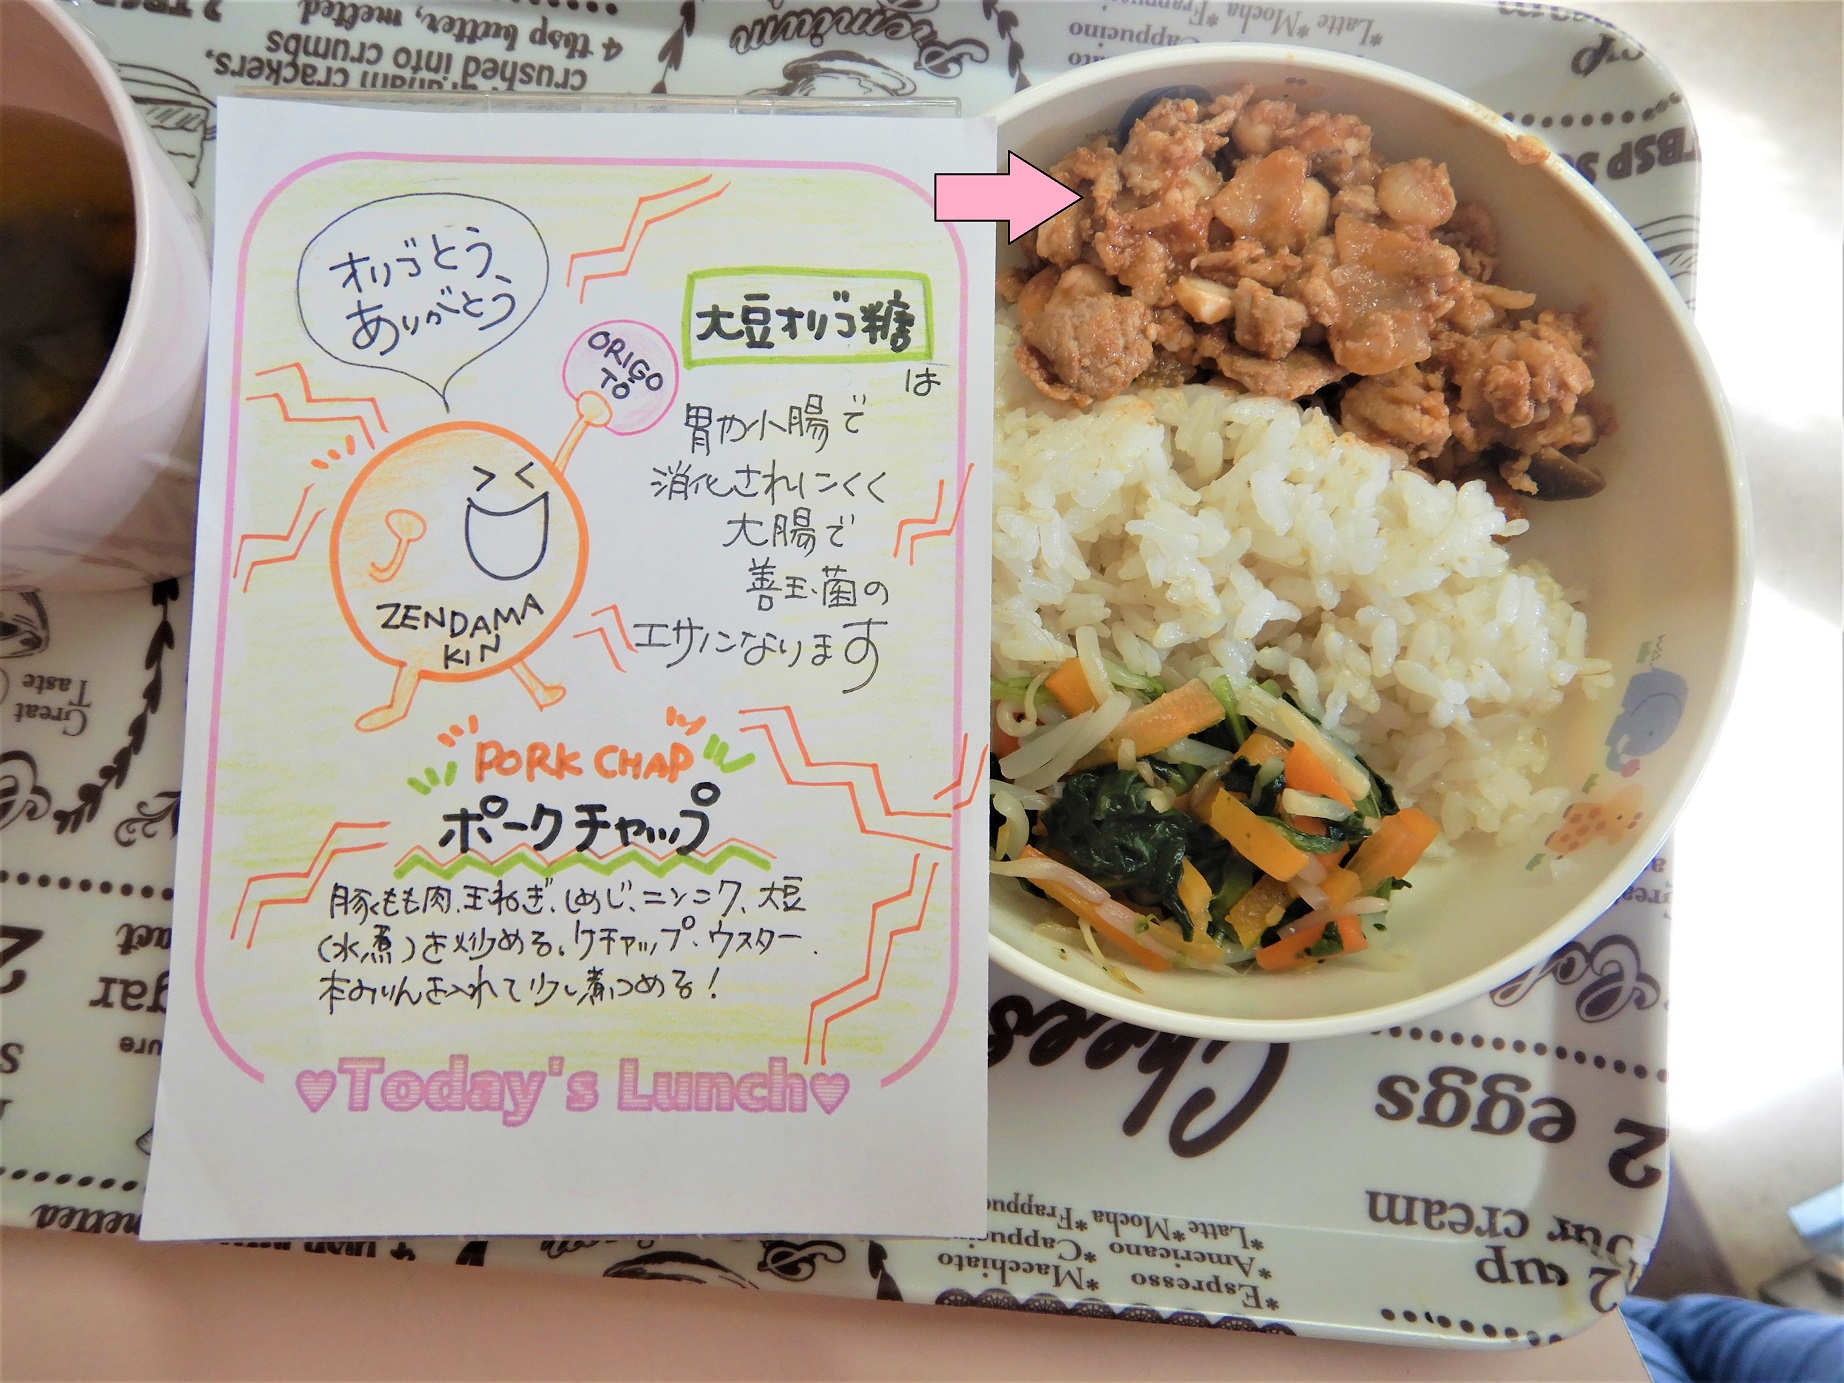 オリゴとう、
ありがとう
ORIGO
TO
大豆オリゴ糖
は
胃や小腸で
消化されにくく
大腸で
善玉菌の
エサになります
ZENDAMA
KIN
PORK CHAP
ポークチャップ
豚もも肉、玉ねぎ、しめじ、ニンニク、大豆
(水煮)を炒める。ケチャップ、ウスター、
本みりんを入れて少し煮つめる!
♥Today's Lunch♥
4 tbsp butter, melted
crushed into crumbs
graham crackers,
Premium
*Latte *Mocha *Frappuc
Cappucino
TBSP
Great
Taste
2 eggs
our cream
2 cup
*Latte *Mocha *Frappuc
*Americano *Cappucin
*Espresso *Macchiato